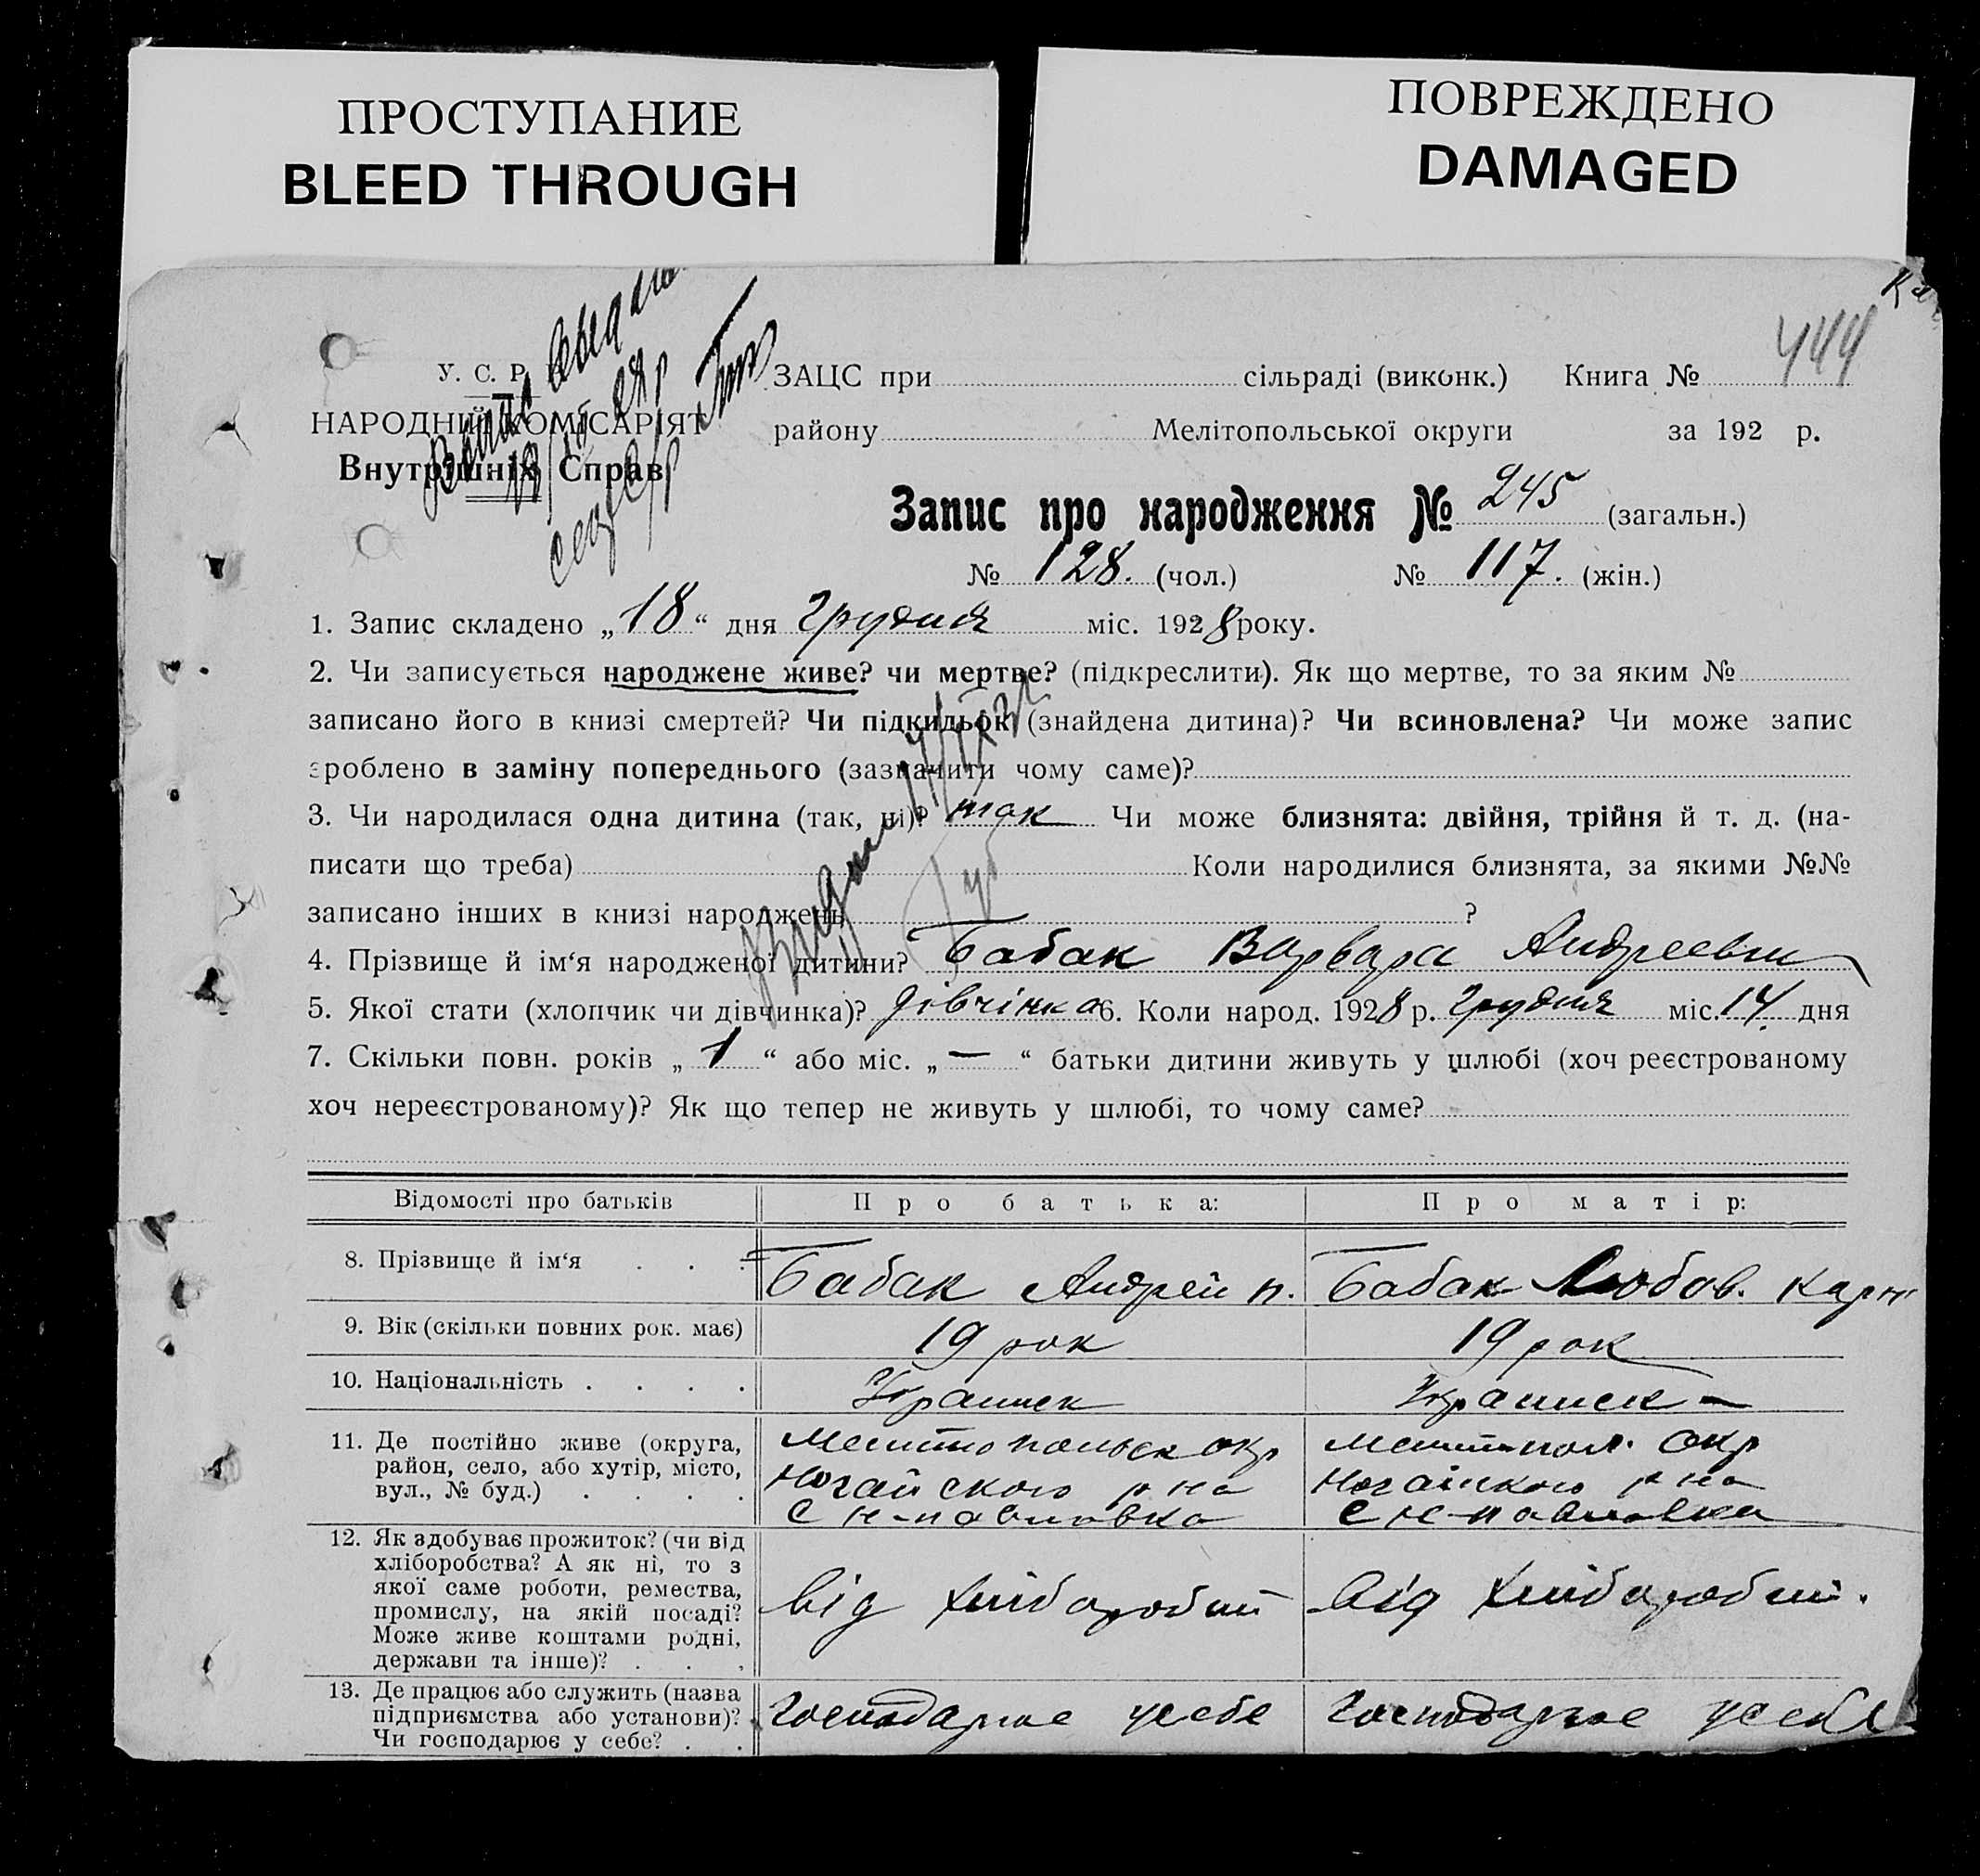 ПРОСТУПАНИЕ
BLEED THROUGH
ПОВРЕЖДЕНО
DAMAGED
444
У. С. Р. Р.
НАРОДНИЙ КОМІСАРІЯТ
Внутрішніх Справ
ЗАЦС при сільраді (виконк.) Книга №
району Мелітопольської округи за 192 р.
Запис про народження № 245 (загальн.)
№ 128. (чол.) № 117. (жін.)
1. Запис складено „18“ дня грудня міс. 1928 року.
2. Чи записується народжене живе? чи мертве? (підкреслити). Як що мертве, то за яким №
записано його в книзі смертей? Чи підкидьок (знайдена дитина)? Чи всиновлена? Чи може запис
зроблено в заміну попереднього (зазначити чому саме)?
3. Чи народилася одна дитина (так, ні)? так Чи може близнята: двійня, трійня й т. д. (на-
писати що треба) Коли народилися близнята, за якими №№
записано інших в книзі народжень ?
4. Прізвище й ім‘я народженої дитини? Бабак Варвара Андреевна
5. Якої стати (хлопчик чи дівчинка)? дівчінка 6. Коли народ. 1928 р. грудня міс. 14. дня
7. Скільки повн. років „1“ або міс. „—“ батьки дитини живуть у шлюбі (хоч реєстрованому
хоч нереєстрованому)? Як що тепер не живуть у шлюбі, то чому саме?
Відомості про батьків Про батька: Про матір:
8. Прізвище й ім‘я . . . Бабак Андрей п. Бабак Любов. Карн
9. Вік (скільки повних рок. має) 19 рок 19 рок
10. Національність . . . . Украинск Украинск —
11. Де постійно живе (округа,
район, село, або хутір, місто,
вул., № буд.) . . . .
Мелитопольск окр
Ногайского р на
С Н-павловка
Мелитопол. окр
Ногайского р на
С Н-павловка
12. Як здобуває прожиток? (чи від
хліборобства? А як ні, то з
якої саме роботи, ремества,
промислу, на якій посаді?
Може живе коштами родні,
держави та інше)? . . .
від хлібаробии від хлібаробии.
13. Де працює або служить (назва
підприємства або установи)?
Чи господарює у себе? . .
господарює усебе господарює усебе